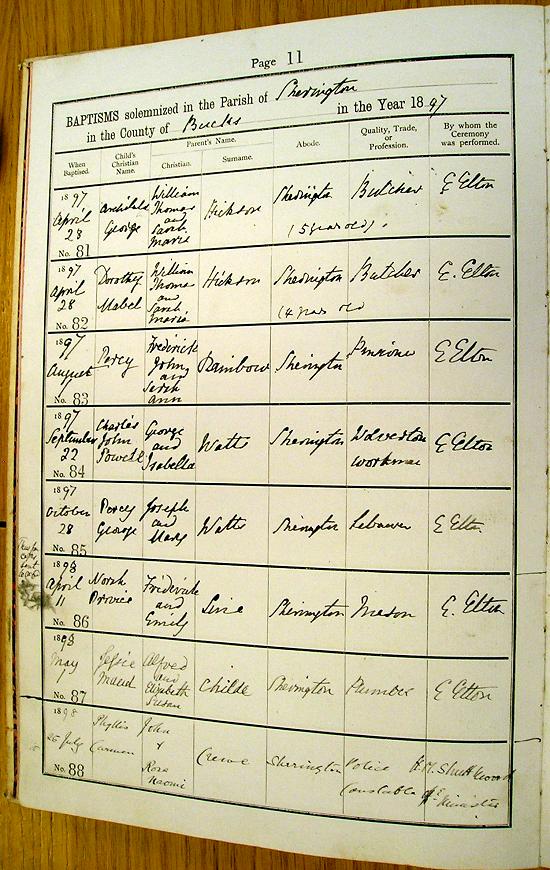 Page 11
BAPTISMS solemnized in the Parish of Sherington
in the County of Bucks in the Year 1897
When Baptised. Child's Christian Name. Parent's Name. Christian. Surname. Abode. Quality, Trade, or Profession. By whom the Ceremony was performed.
1897 April 28 No. 81 Archibald George William Thomas and Sarah Maria Hickson Sherington (5 years old) Butcher E Elton
1897 April 28 No. 82 Dorothy Mabel William Thomas and Sarah Maria Hickson Sherington (4 years old Butcher E. Elton
1897 August No. 83 Percy Frederick John and Sarah Ann Rainbow Sherington E Elton
1897 September 22 No. 84 Charles John Powell George and Isabella Watts Sherington Wolverton workman E Elton
1897 October 28 No. 85 Percy George Joseph and Mary Watts Sherington Labourer E Elton
1898 April 11 No. 86 Norah Frederick and Emily Line Sherington Mason E. Elton
1898 May 1 No. 87 Jessie Maud Alfred and Elizabeth Susan Childs Sherington Plumber E Elton
1898 July No. 88 Phyllis Carmen John & Rose Naomi Crewe Sherington Police Constable